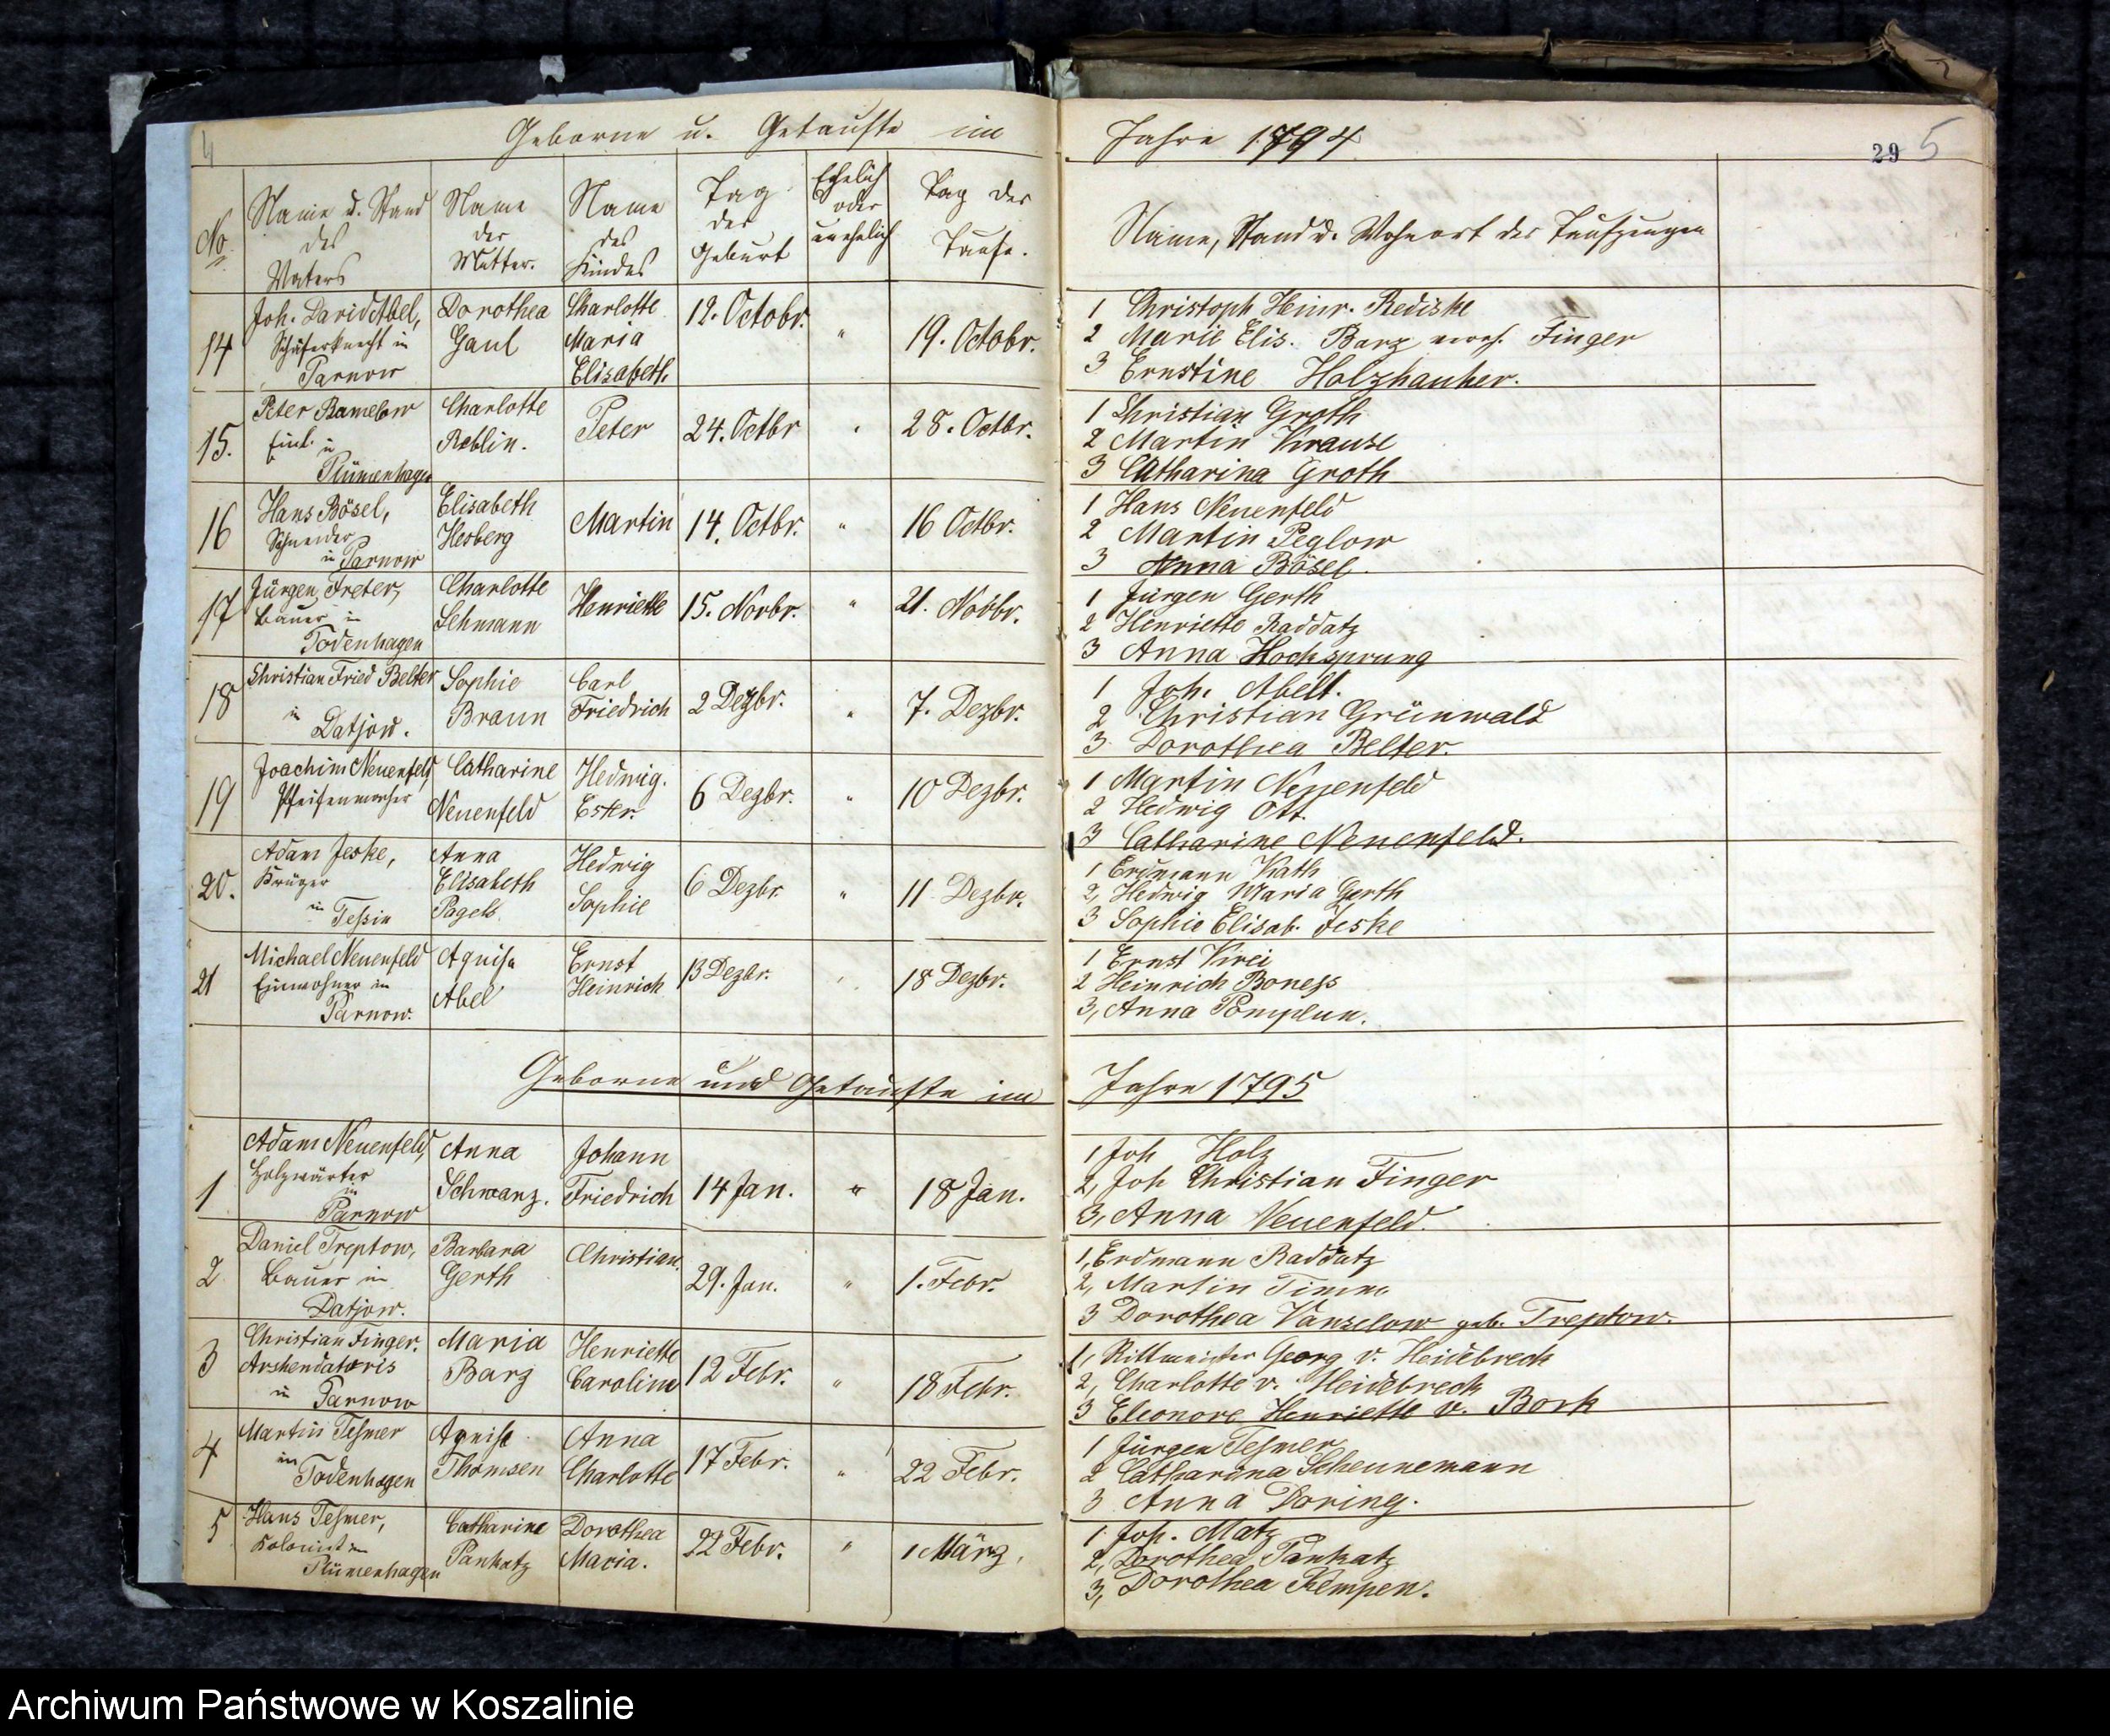 4
Geborne u. Getaufte im
Jahre 1794
29 5
No.
Name u. Stand
des
Vaters
Name
der
Mutter.
Name
des
Kindes
Tag
der
Geburt
Ehelich
oder
unehelich
Tag der
Taufe.
Name, Stand u. Wohnort der Taufzeugen
14
Joh. David Abel,
Schäferknecht in
Parnow
Dorothea
Gaul
Charlotte
Maria
Elisabeth
12. Octobr.
"
19. Octobr.
1 Christoph Heinr. Rediske
2 Marie Elis. Barz verh. Finger
3 Ernstine Holzhauher.
15.
Peter Ramelow
Einl. in
Plümenhagen
Charlotte
Reblin.
Peter
24. Octbr
"
28. Octbr.
1 Christian Groth
2 Martin Krause
3 Catharina Groth
16
Hans Bösel,
Schneider
in Parnow
Elisabeth
Hesberg
Martin
14. Octbr.
"
16 Octbr.
1 Hans Neuenfeld
2 Martin Peglow
3 Anna Bösel.
17
Jürgen Freter,
Bauer in
Todenhagen
Charlotte
Lehmann
Henriette
15. Novbr.
"
21. Novbr.
1 Jürgen Gerth
2 Henriette Raddatz
3 Anna Hochsprung
18
Christian Fried Belter
in
Datjow.
Sophie
Braun
Carl
Friedrich
2 Dezbr.
"
7. Dezbr.
1 Joh. Abelt.
2 Christian Grünwald
3 Dorothea Belter.
19
Joachim Neuenfeld
Pfeifenmacher
Catharine
Neuenfeld
Hedwig.
Ester.
6 Dezbr.
"
10 Dezbr.
1 Martin Neuenfeld
2 Hedwig Ott
3 Catharine Neuenfeld.
20.
Adam Jeske,
Krüger
in Teßin
Anna
Elisabeth
Pagels
Hedwig
Sophie
6 Dezbr
"
11 Dezbr.
1 Erdmann Kath
2, Hedwig Maria Gerth
3 Sophie Elisab. Jeske
21
Michael Neuenfeld
Einwohner in
Parnow.
Agnisa
Abel
Ernst
Heinrich
13 Dezbr.
"
18 Dezbr.
1 Ernst Virei
2 Heinrich Boness
3, Anna Pomplun.
Geborne und Getaufte im
Jahre 1795
1
Adam Neuenfeld,
Holzwärter
in
Parnow
Anna
Schwanz.
Johann
Friedrich
14 Jan.
"
18 Jan.
1 Joh Holz
2, Joh Christian Finger
3, Anna Neuenfeld.
2
Daniel Treptow,
Bauer in
Datjow.
Barbara
Gerth
Christian.
29. Jan.
"
1. Febr.
1, Erdmann Raddatz
2, Martin Timm
3 Dorothea Vanselow geb. Treptow.
3
Christian Finger.
Arrhendatoris
in Parnow
Maria
Barz
Henriette
Caroline
12 Febr.
"
18 Febr.
1, Rittmeister Georg v. Heidebreck
2, Charlotte v. Heidebreck
3 Eleonore Henriette v. Bork
4
Martin Teßmer
in
Todenhagen
Agnise
Thomsen
Anna
Charlotte
17 Febr.
"
22 Febr.
1 Jürgen Teßmer
2 Catharina Scheunemann
3 Anna Doring.
5
Hans Teßmer,
Kolonist in
Plümenhagen
Catharine
Pankatz
Dorothea
Maria.
22 Febr.
"
1 März,
1 Joh. Matz
2, Dorothea Pankatz
3, Dorothea Kempen.
Archiwum Państwowe w Koszalinie